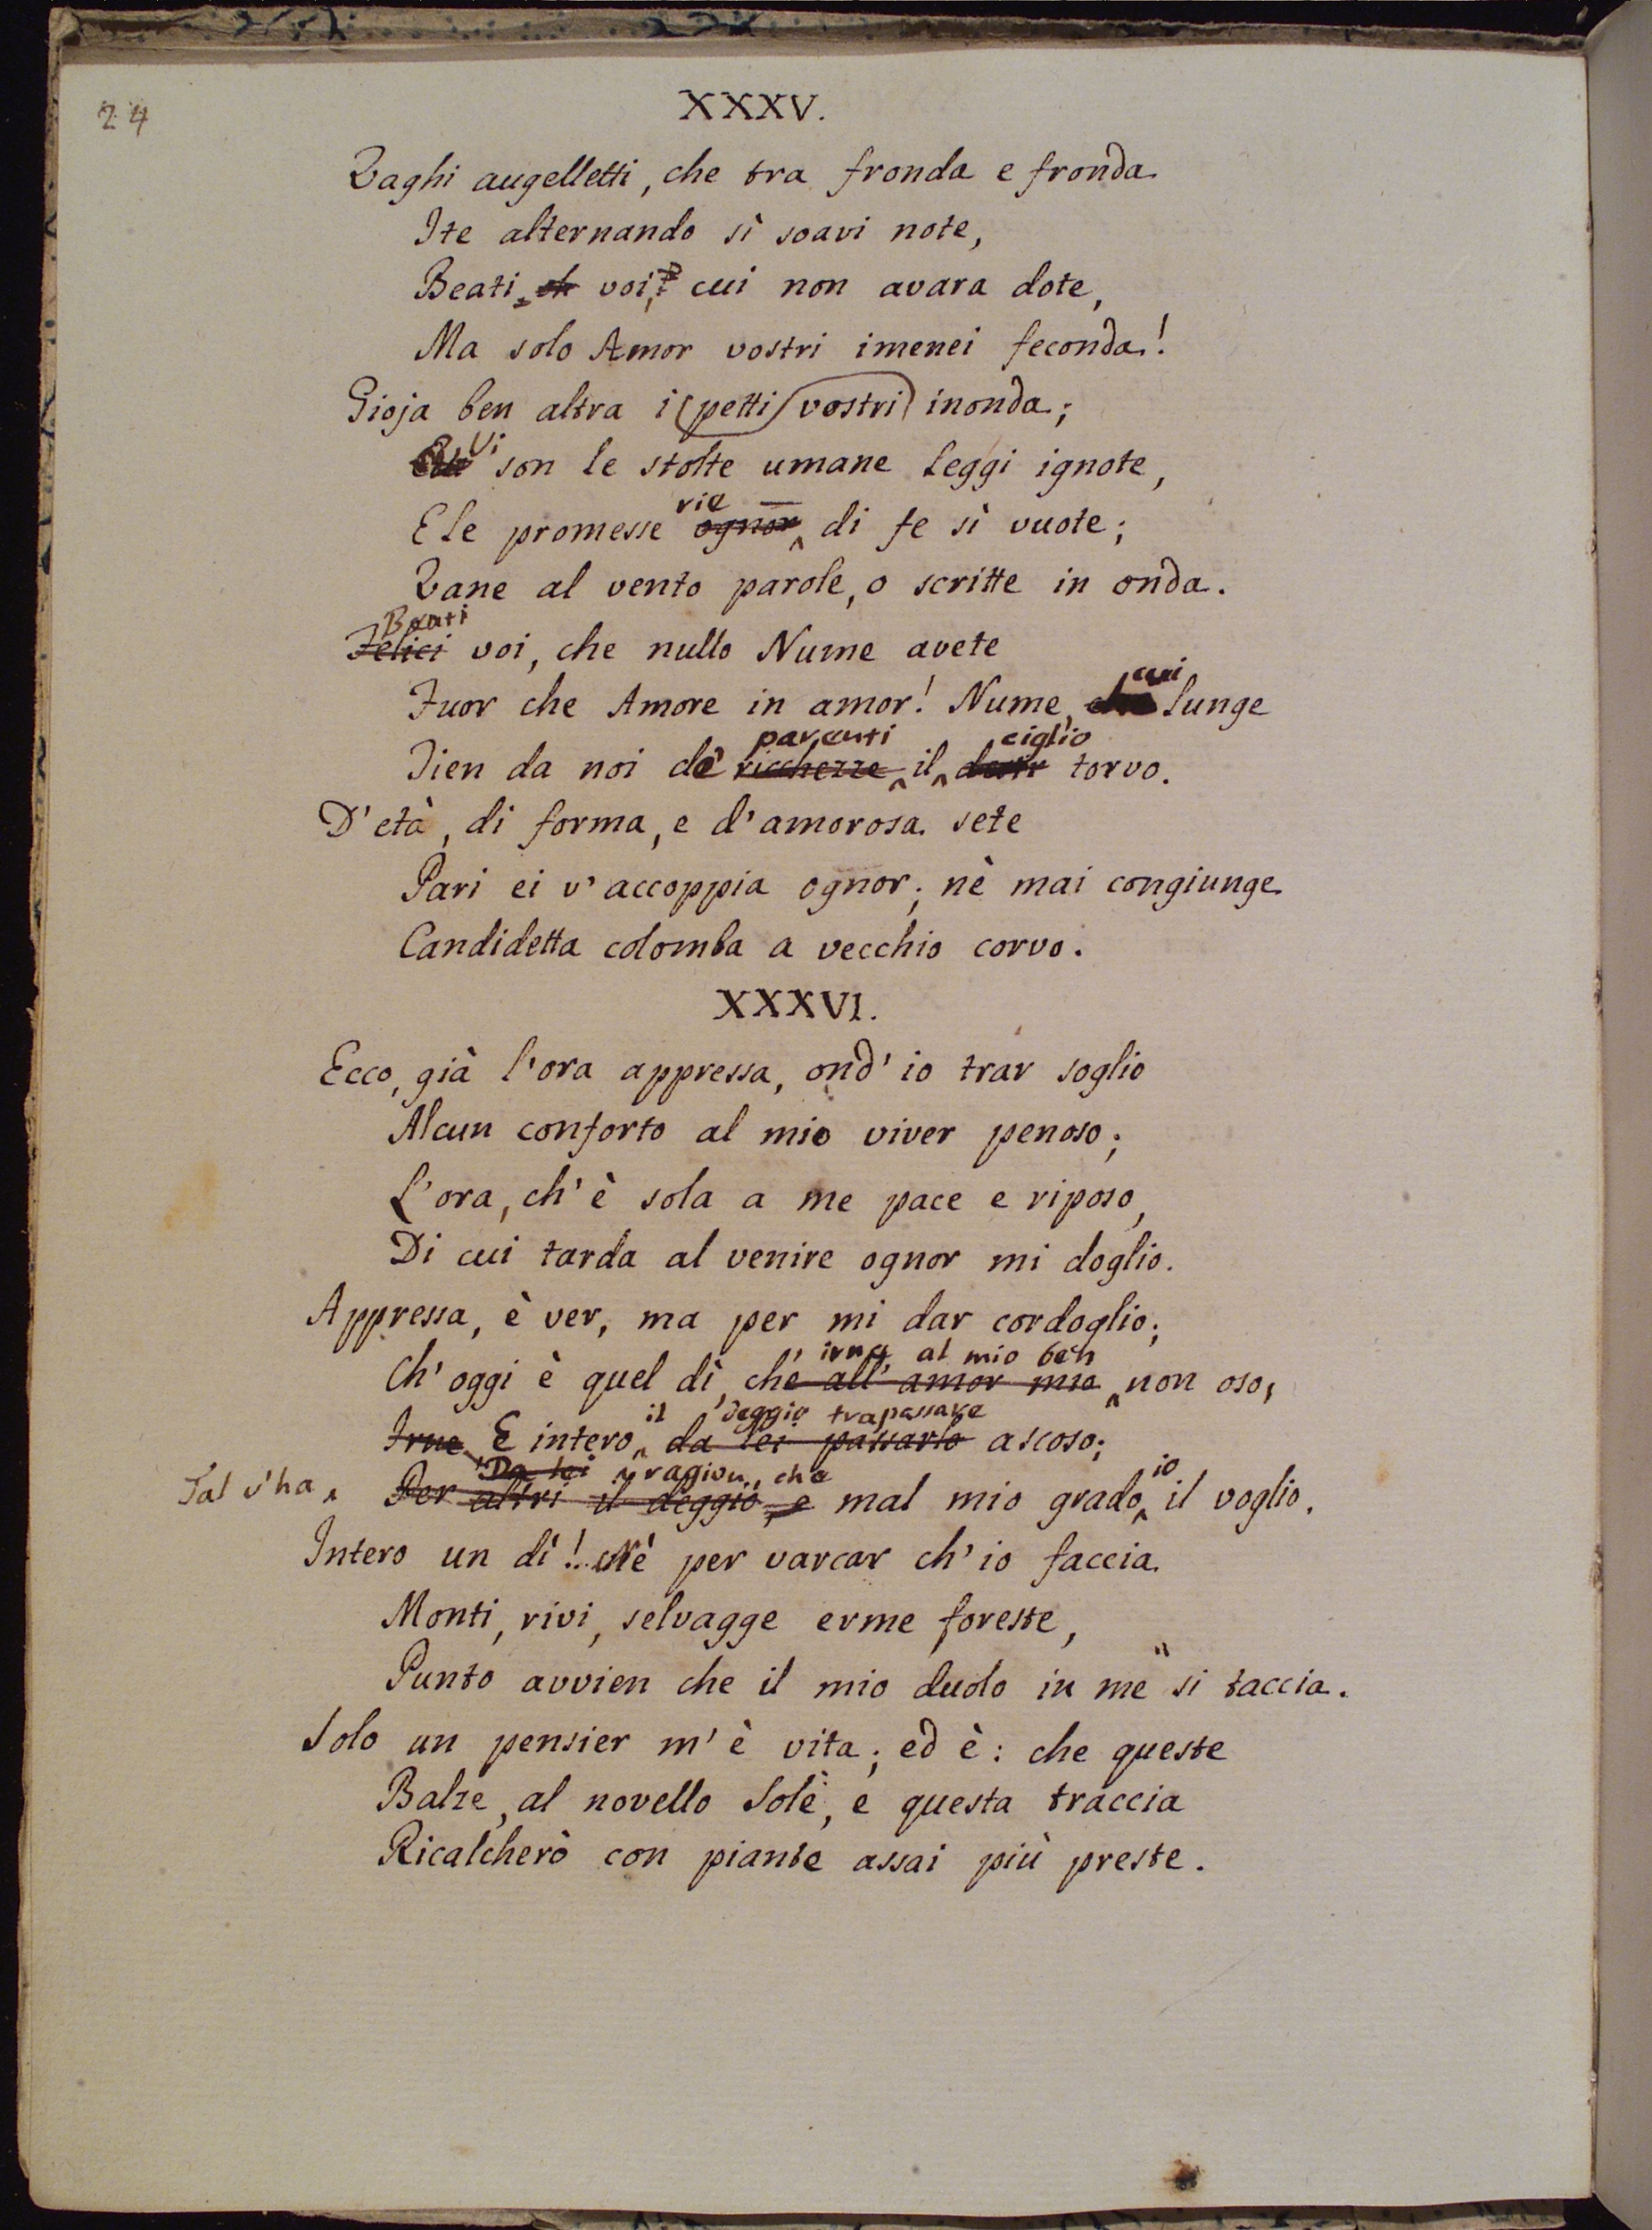 24
XXXV.
Vaghi augelletti, che tra fronda e fronda
Ite alternando sì soavi note,
Beati, oh voi, cui non avara dote,
Ma solo Amor vostri imenei feconda!
Gioja ben altra i petti vostri inonda;
Vi
son le stolte umane leggi ignote,
rie
E le promesse ognor di fe sì vuote;
Vane al vento parole, o scritte in onda.
Beati
Felici voi, che nullo Nume avete
cui
Fuor che Amore in amor! Nume, che lunge
parenti ciglio
Tien da noi de' ricchezze il torvo.
D'età, di forma, e d'amorosa sete
Pari ei v'accoppia ognor; nè mai congiunge
Candidetta colomba a vecchio corvo.
XXXVI.
Ecco, già l'ora appressa, ond'io trar soglio
Alcun conforto al mio viver penoso;
L'ora, ch'è sola a me pace e riposo,
Di cui tarda al venire ognor mi doglio.
Appressa, è ver, ma per mi dar cordoglio;
irne al mio ben
Ch'oggi è quel dì, che all'amor mio non oso,
il deggio trapassare
Irne E intero, da lei passarlo ascoso;
Da lei ragion, che io
Tal v'ha Per altri il deggio, e mal mio grado il voglio.
Intero un dì!.. Nè per varcar ch'io faccia
Monti, rivi, selvagge erme foreste,
Punto avvien che il mio duolo in me si taccia.
Solo un pensier m'è vita; ed è: che queste
Balze, al novello Sole, e questa traccia
Ricalcherò con piante assai più preste.